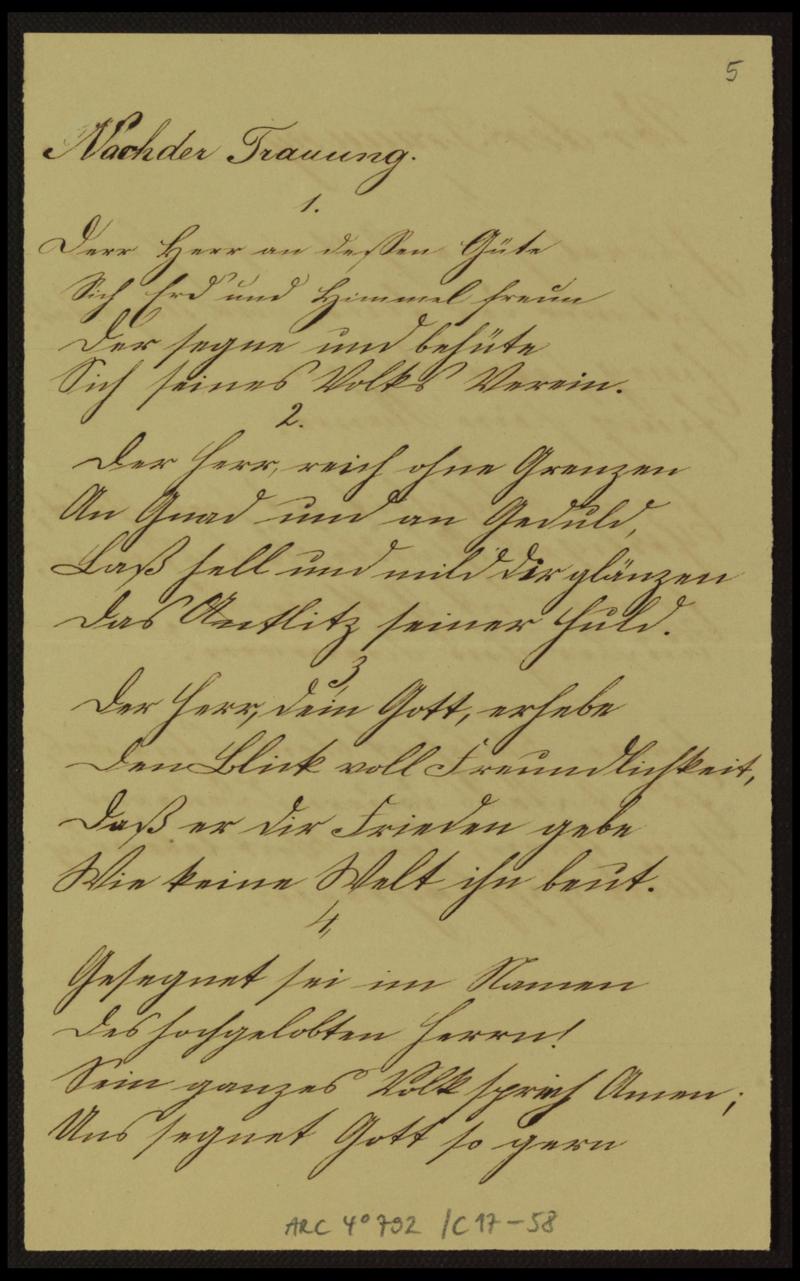 5
Nach der Trauung.
1.
Derr Herr an dessen Güte
Sich Erd und Himmel freun
Der segne und behüte
Sich seines Volks Verein.
2.
Der Herr, reich ohne Grenzen
An Gnad und an Geduld,
Laß hell und mild dir glänzen
Das Antlitz seiner Huld.
3
Der Herr, dein Gott, erhebe
Den Blick voll Freundlichkeit,
Daß er dir Frieden gebe
Wie keine Welt ihn beut.
4,
Gesegnet sei im Namen
Des hochgelobten Herrn!
Sein ganzes Volk sprech Amen;
Uns segnet Gott so gern
ARC 4° 792 /C17-58